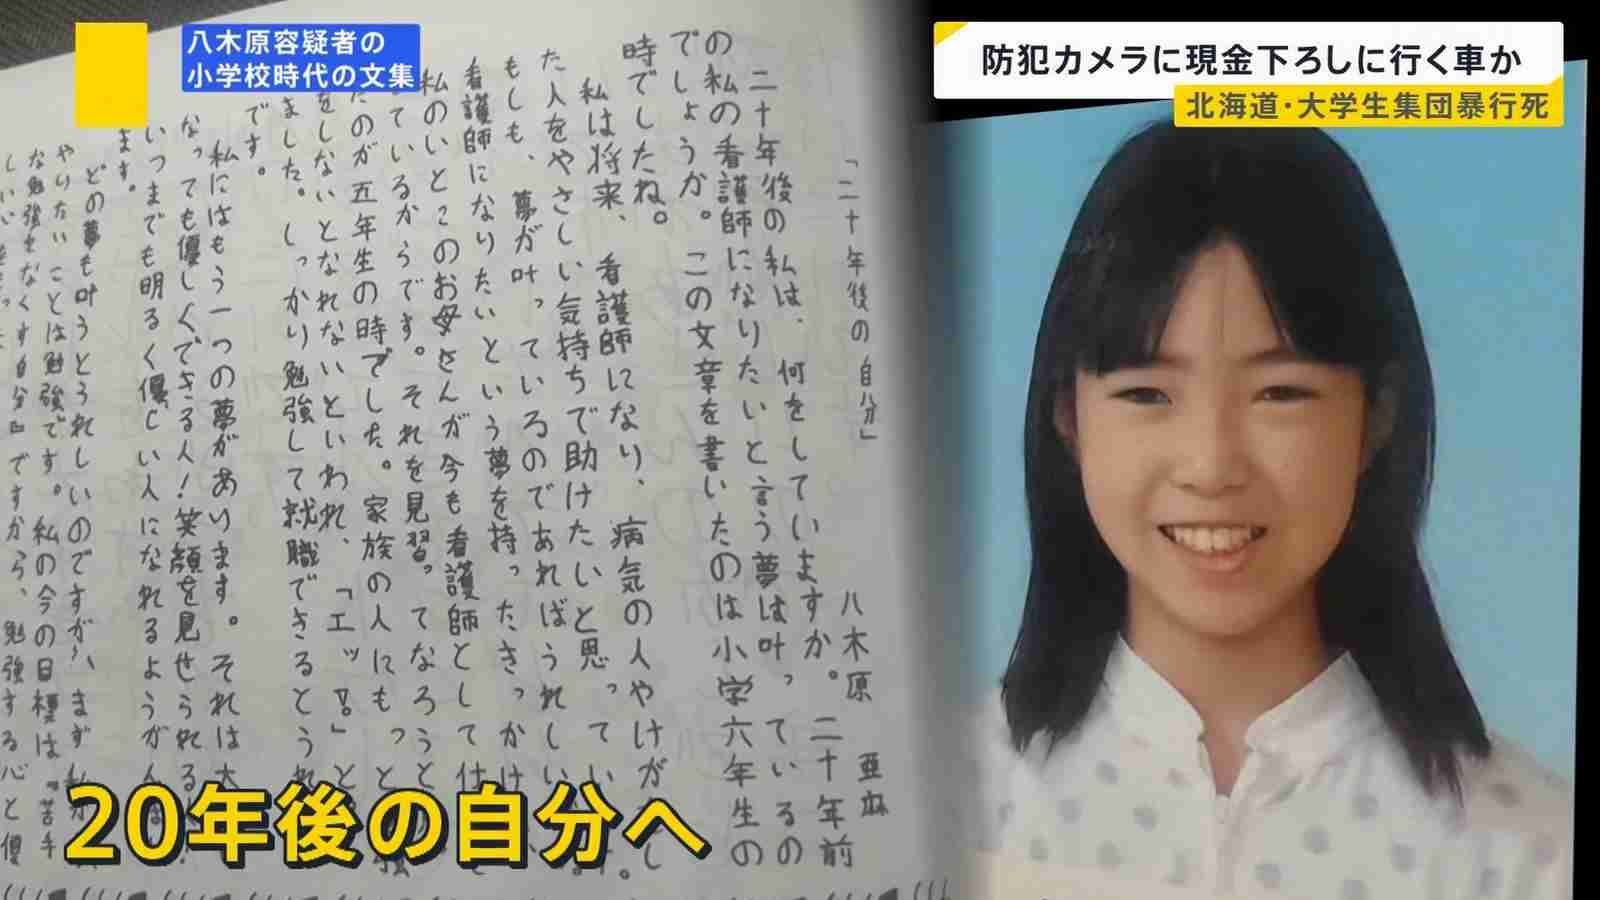 八木原容疑者の
小学校時代の文集
防犯カメラに現金下ろしに行く車か
北海道・大学生集団暴行死
「二十年後の自分」
八木原 亜麻
二十年後の私は、何をしていますか。二十年前
の私の看護師になりたいと言う夢は叶っているの
でしょうか。この文章を書いたのは小学六年生の
時でしたね。
私は将来、看護師になり、病気の人やけがをし
た人をやさしい気持ちで助けたいと思ってい
もしも、夢が叶っているのであればうれしい
看護師になりたいという夢を持ったきっかけ
私のいとこのお母さんが今も看護師として仕
ているからです。それを見習ってなろうと
のが五年生の時でした。家族の人にもっと
をしないとなれないといわれ、「エッ!?」と
ました。しっかり勉強して就職できるとうれ
です。
私にはもう一つの夢があります。それは大
なっても優しくできる人!笑顔を見せられる
いつまでも明るく優しい人になれるようがん
ます。
どの夢も叶うとうれしいのですが、まず私が
やりたいことは勉強です。私の今の目標は『苦手
な勉強をなくす自分』ですから、勉強する心と優
20年後の自分へ